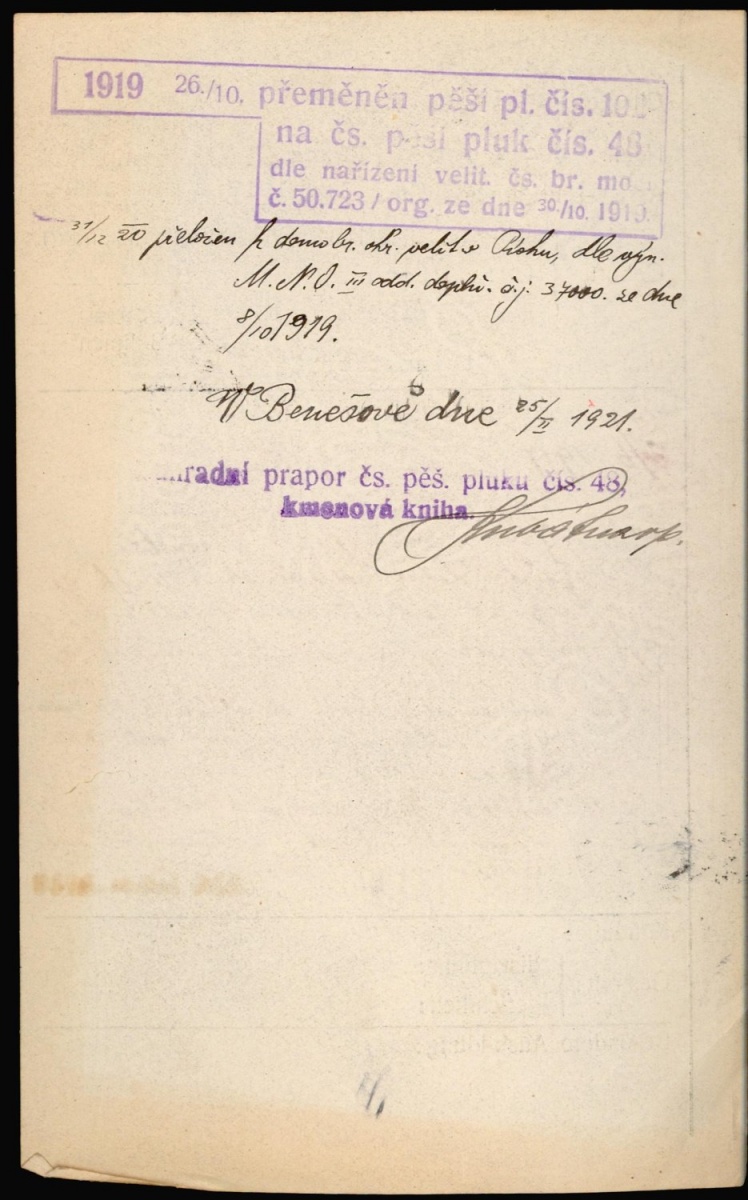 1919 26./10. přeměněn pěší pl. čís. 102
na čs. pěší pluk čís. 48
dle nařízení velit. čs. br. mo
č. 50.723 / org. ze dne 30./10. 1919.
31/12 20 přeložen k domobr. okr. velit. v Písku, dle výn.
M. N. O. III odd. doplň. č. j. 37000. ze dne
8/10 1919.
V Benešově dne 25/II 1921.
hradní prapor čs. pěš. pluku čís. 48,
kmenová kniha.